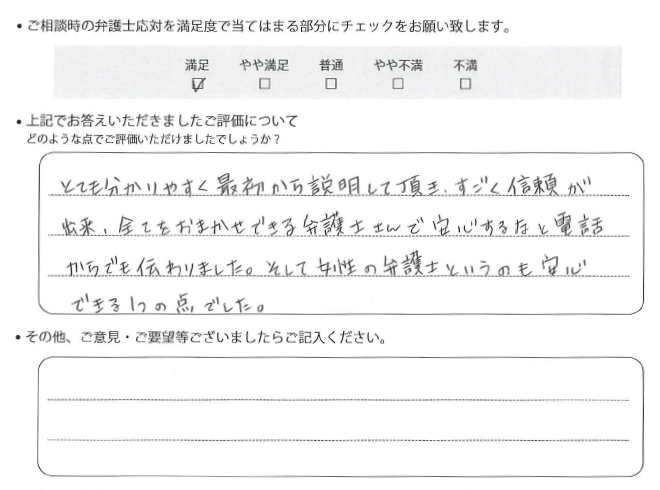 • ご相談時の弁護士応対を満足度で当てはまる部分にチェックをお願い致します。
満足 やや満足 普通 やや不満 不満
☑ □ □ □ □
• 上記でお答えいただきましたご評価について
どのような点でご評価いただけましたでしょうか？
とても分かりやすく最初から説明して頂き、すごく信頼が
出来、全てをおまかせできる弁護士さんで安心するなと電話
からでも伝わりました。そして女性の弁護士というのも安心
できる1つの点でした。
• その他、ご意見・ご要望等ございましたらご記入ください。